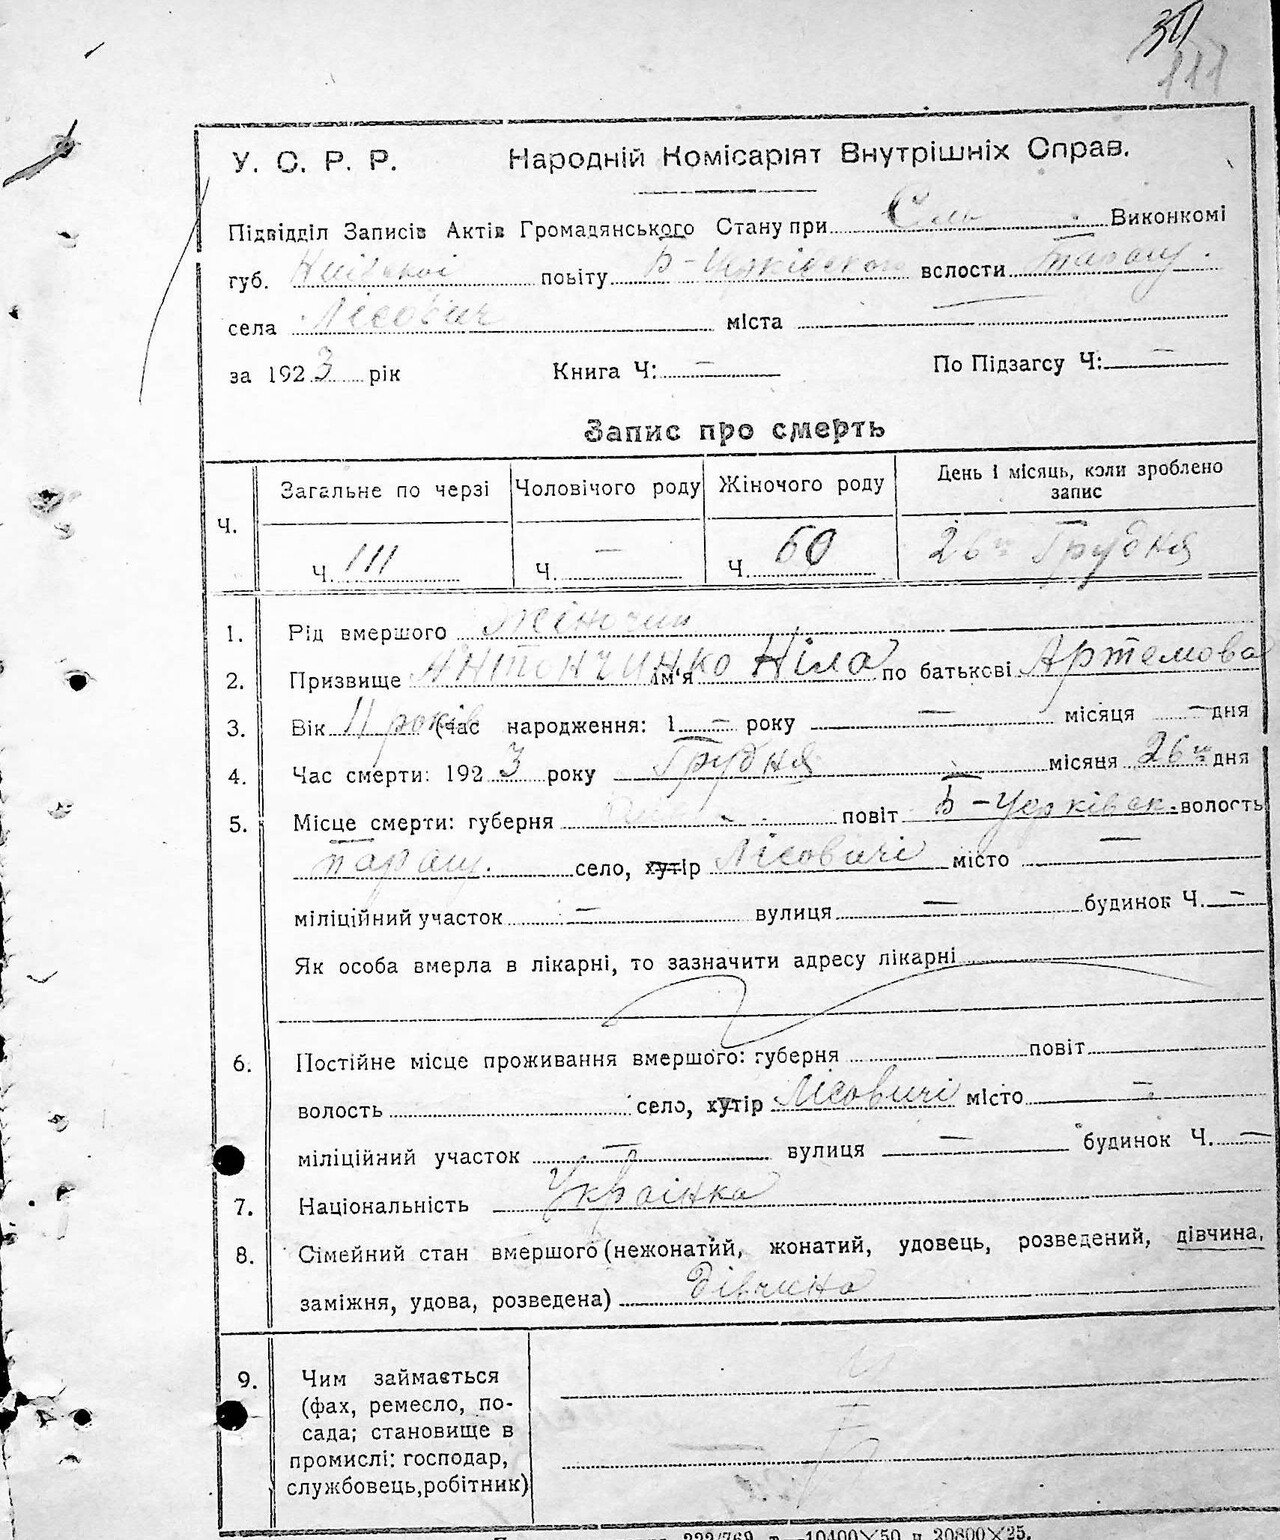 ЗП
111
У. С. Р. Р. Народній Комісаріят Внутрішніх Справ.
Підвідділ Записів Актів Громадянського Стану при Сль . Виконкомі
губ. Київської повіту Б-Церківського вслости Таращ.
села Лісович міста —
за 1923 рік Книга Ч: — По Підзагсу Ч: —
Запис про смерть
Ч. Загальне по черзі Чоловічого роду Жіночого роду День і місяць, коли зроблено запис
Ч. 111 Ч. — Ч. 60 26го Грудня
1. Рід вмершого Жіночий
2. Призвище Антончинко ім'я Ніла по батькові Артемова
3. Вік 11 років (час народження: 1 — року — місяця — дня
4. Час смерти: 1923 року Грудня місяця 26го дня
5. Місце смерти: губерня повіт Б-Церківськ. волость
Таращ. село, хутір Лісовичі місто —
міліційний участок — вулиця — будинок Ч. —
Як особа вмерла в лікарні, то зазначити адресу лікарні
6. Постійне місце проживання вмершого: губерня повіт
волость село, хутір Лісовичі місто —
міліційний участок — вулиця — будинок Ч. —
7. Національність Українка
8. Сімейний стан вмершого (нежонатий, жонатий, удовець, розведений, дівчина,
заміжня, удова, розведена) дівчина
9. Чим займається
(фах, ремесло, по-
сада; становище в
промислі: господар,
службовець, робітник)
222/769. т.—10400×50 п 20800×25.